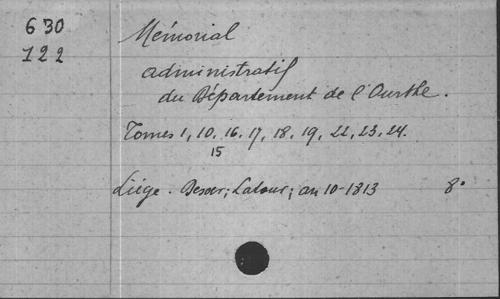 630
122
Mémorial
administratif
du Département de l'Ourthe.
Tomes 1, 10, 16, 17, 18, 19, 22, 23, 24.
15
Liége. Desoer; Latour; an 10-1813 8°